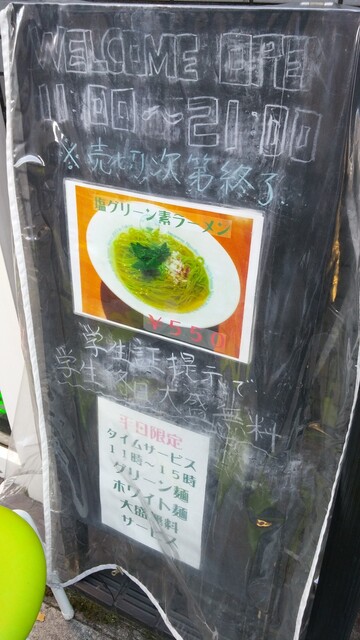 WELCOME OPEN
11:00～21:00
※売切れ次第終了
塩グリーン素ラーメン
￥550
学生証提示で
学生 毎日大盛無料
平日限定
タイムサービス
11時～15時
グリーン麺
ホワイト麺
大盛無料
サービス